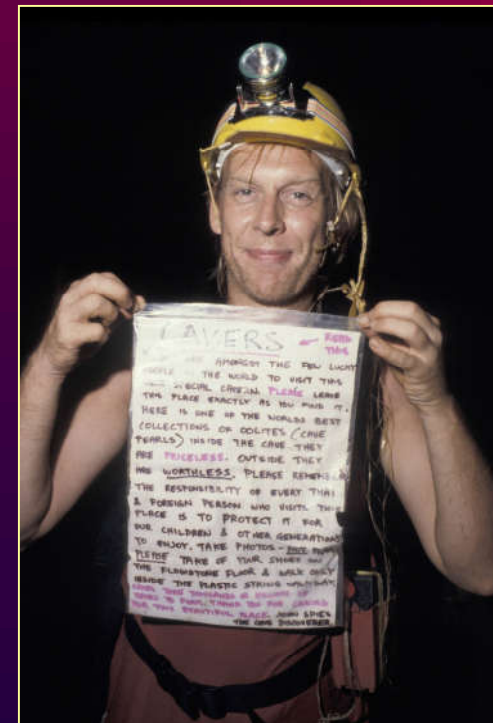 CAVERS ← READ
THIS
AMONGST THE FEW LUCKY
PEOPLE THE WORLD TO VISIT THIS
SPECIAL CAVERN. PLEASE LEAVE
THIS PLACE EXACTLY AS YOU FIND IT.
HERE IS ONE OF THE WORLDS BEST
COLLECTIONS OF OOLITES (CAVE
PEARLS) INSIDE THE CAVE THEY
ARE PRICELESS. OUTSIDE THEY
ARE WORTHLESS. PLEASE REMEMBER
THE RESPONSIBILITY OF EVERY THAI
& FOREIGN PERSON WHO VISITS THIS
PLACE IS TO PROTECT IT FOR
OUR CHILDREN & OTHER GENERATIONS
TO ENJOY. TAKE PHOTOS -
PLEASE TAKE OF YOUR SHOES ON
THE FLOWSTONE FLOOR & WALK ONLY
INSIDE THE PLASTIC STRING WALKWAY.
THANK YOU FOR CARING
FOR THIS BEAUTIFUL PLACE. JOHN SPIES
THE CAVE DISCOVERER